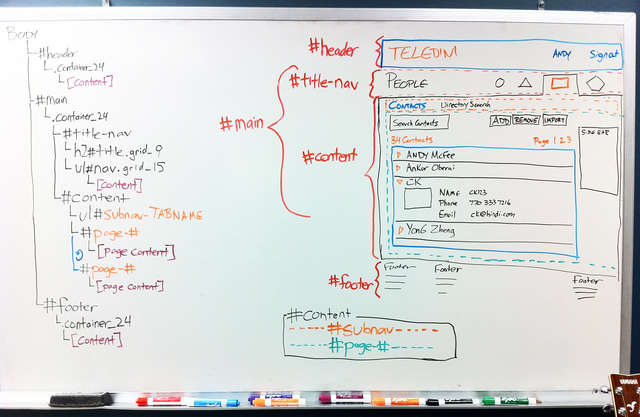 Body
#header
.container_24
[content]
#main
.container_24
#title-nav
h2#title.grid_9
ul#nav.grid_15
[content]
#content
ul#subnav-TABNAME
#page-#
[page content]
#page-#
[page content]
#footer
.container_24
[content]
#header
#title-nav
#main
#content
#footer
TELEDINI
ANDY
Signout
PEOPLE
CONTACTS Directory Search
Search Contacts
ADD REMOVE IMPORT
SIDE BAR
34 Contacts
Page 1 2 3
ANDY McFee
Ankur Oberai
CK
NAME CK123
Phone 770 333 7216
Email
Yong Zheng
Footer
Footer
Footer
#content
#subnav
#page-#